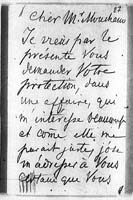 57
Cher Mr Mouchaux
Je viens par la
présente Vous
demander Votre
protection, dans
une affaire, qui
m intéresse beaucoup
et come elle me
parait juste, j ose
m adresser à Vous
certain que Vous